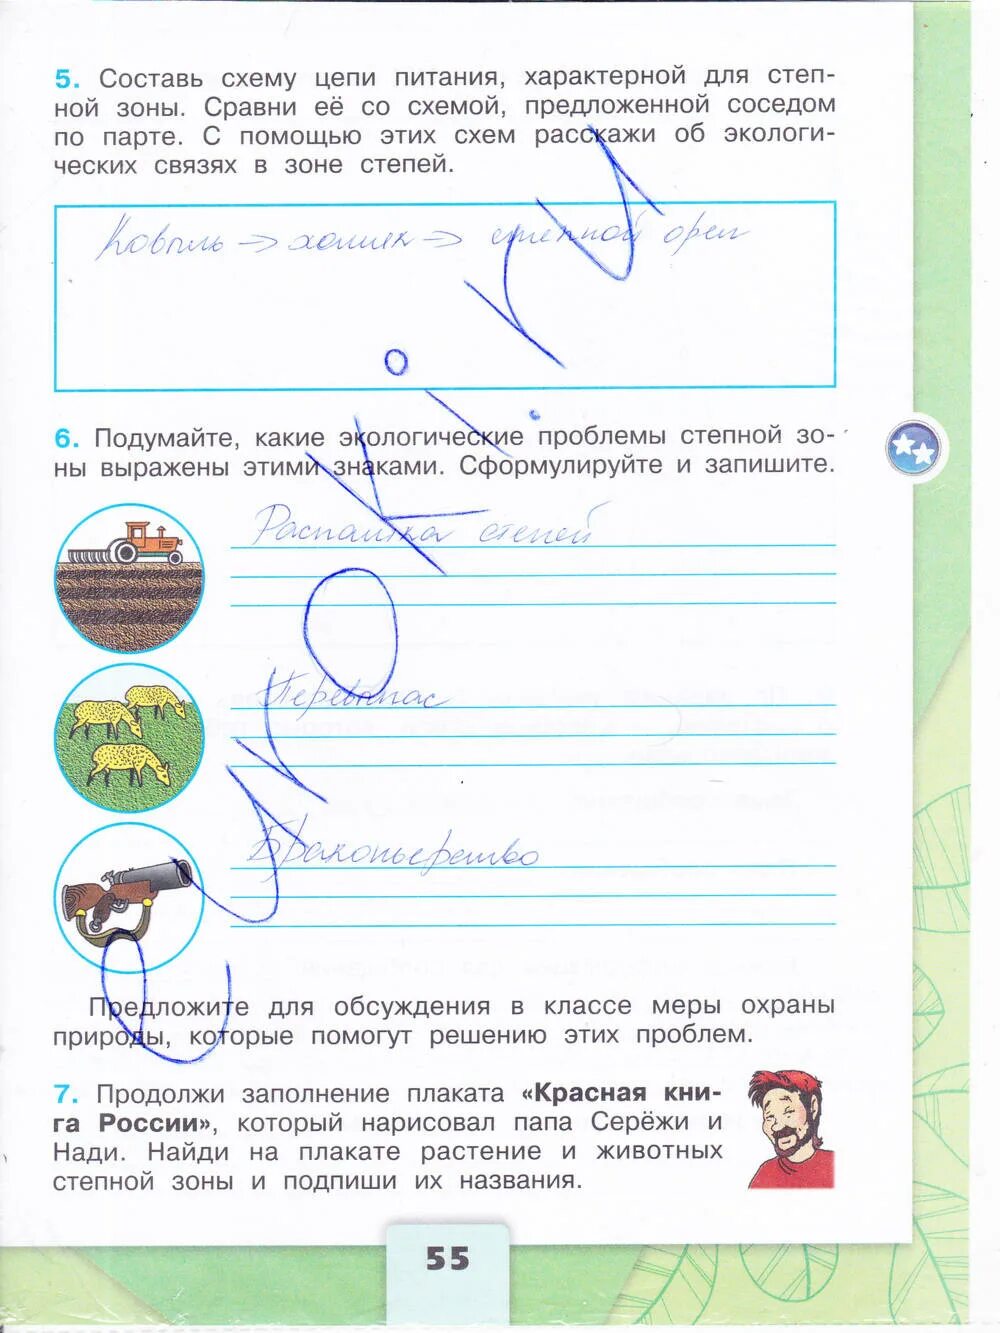 5. Составь схему цепи питания, характерной для степ-
ной зоны. Сравни её со схемой, предложенной соседом
по парте. С помощью этих схем расскажи об экологи-
ческих связях в зоне степей.
Ковыль → хомяк → степной орел
6. Подумайте, какие экологические проблемы степной зо-
ны выражены этими знаками. Сформулируйте и запишите.
Распашка степей
Перевыпас
Браконьерство
Предложите для обсуждения в классе меры охраны
природы, которые помогут решению этих проблем.
7. Продолжи заполнение плаката «Красная кни-
га России», который нарисовал папа Серёжи и
Нади. Найди на плакате растение и животных
степной зоны и подпиши их названия.
55